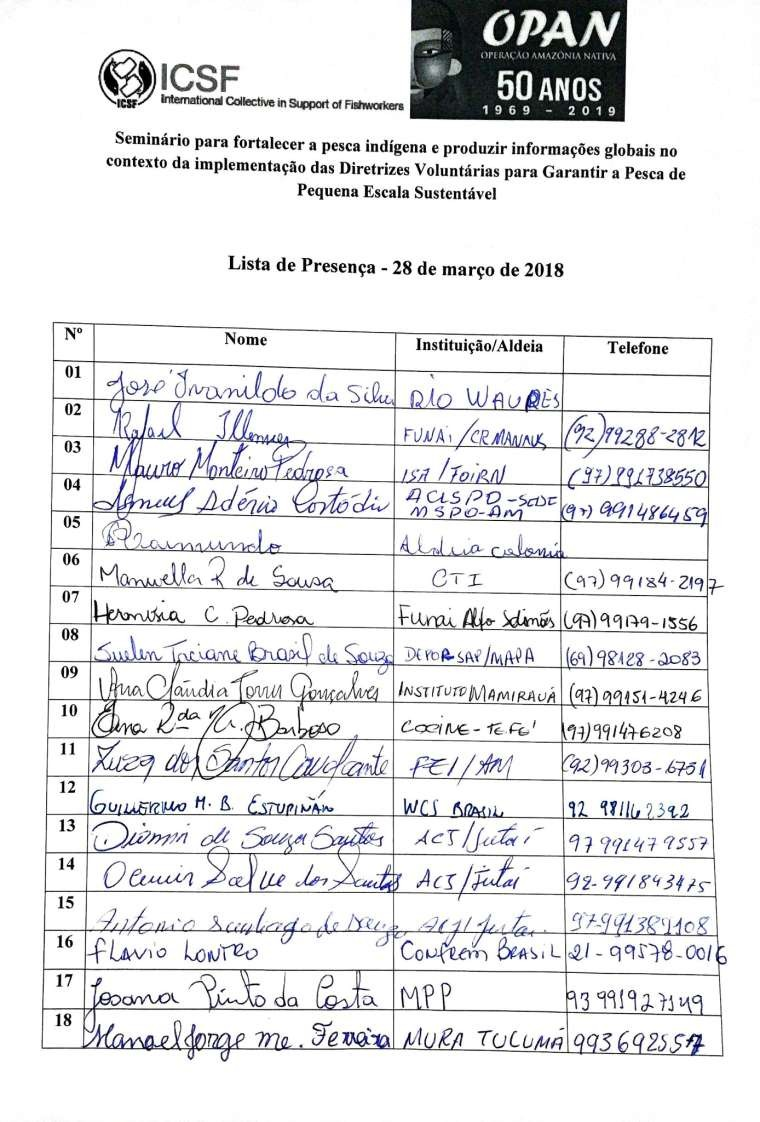 ICSF
International Collective in Support of Fishworkers
ICSF
OPAN
OPERAÇÃO AMAZÔNIA NATIVA
50 ANOS
1969 - 2019
Seminário para fortalecer a pesca indígena e produzir informações globais no
contexto da implementação das Diretrizes Voluntárias para Garantir a Pesca de
Pequena Escala Sustentável
Lista de Presença - 28 de março de 2018
Nº Nome Instituição/Aldeia Telefone
01 José Ivanildo da Silva RIO
02 Rafael FUNAI/CRMANAUS (92)99288-2812
03 Mauro Monteiro Pedrosa ISA/FOIRN (97)991738550
04 Adércio Custódio ACISPO-SEDE
MSPO-AM (97)991486459
05 Raimundo Aldeia colonia
06 Manuella R de Sousa CTI (97)99184-2197
07 C. Pedrosa Funai Alto Solimões (97)99179-1556
08 Suelen Taciane Brasil de Souza DEPOR SAP/MAPA (69)98128-2083
09 Ana Cláudia Torres Gonçalves INSTITUTO MAMIRAUÁ (97)99151-4246
10 Rda Barboso TEFÉ (97)991476208
11 Luzia dos Santos Cavalcante FEI/AM (92)99303-6751
12 GUILLERMO M. B. ESTUPIÑÁN WCS BRASIL 92 981162392
13 de Souza Santos ACJ/Jutaí 97 991479557
14 dos Santos ACJ/Jutaí 92-991843475
15 Antonio Santiago de Souza ACJ/Jutai. 97-991389108
16 FLAVIO LONTRO CONFREM BRASIL 21-99578-0016
17 Josana Pinto da Costa MPP 93 991927149
18 Manoel Jorge me. Ferreira MURA TUCUMÃ 993692557